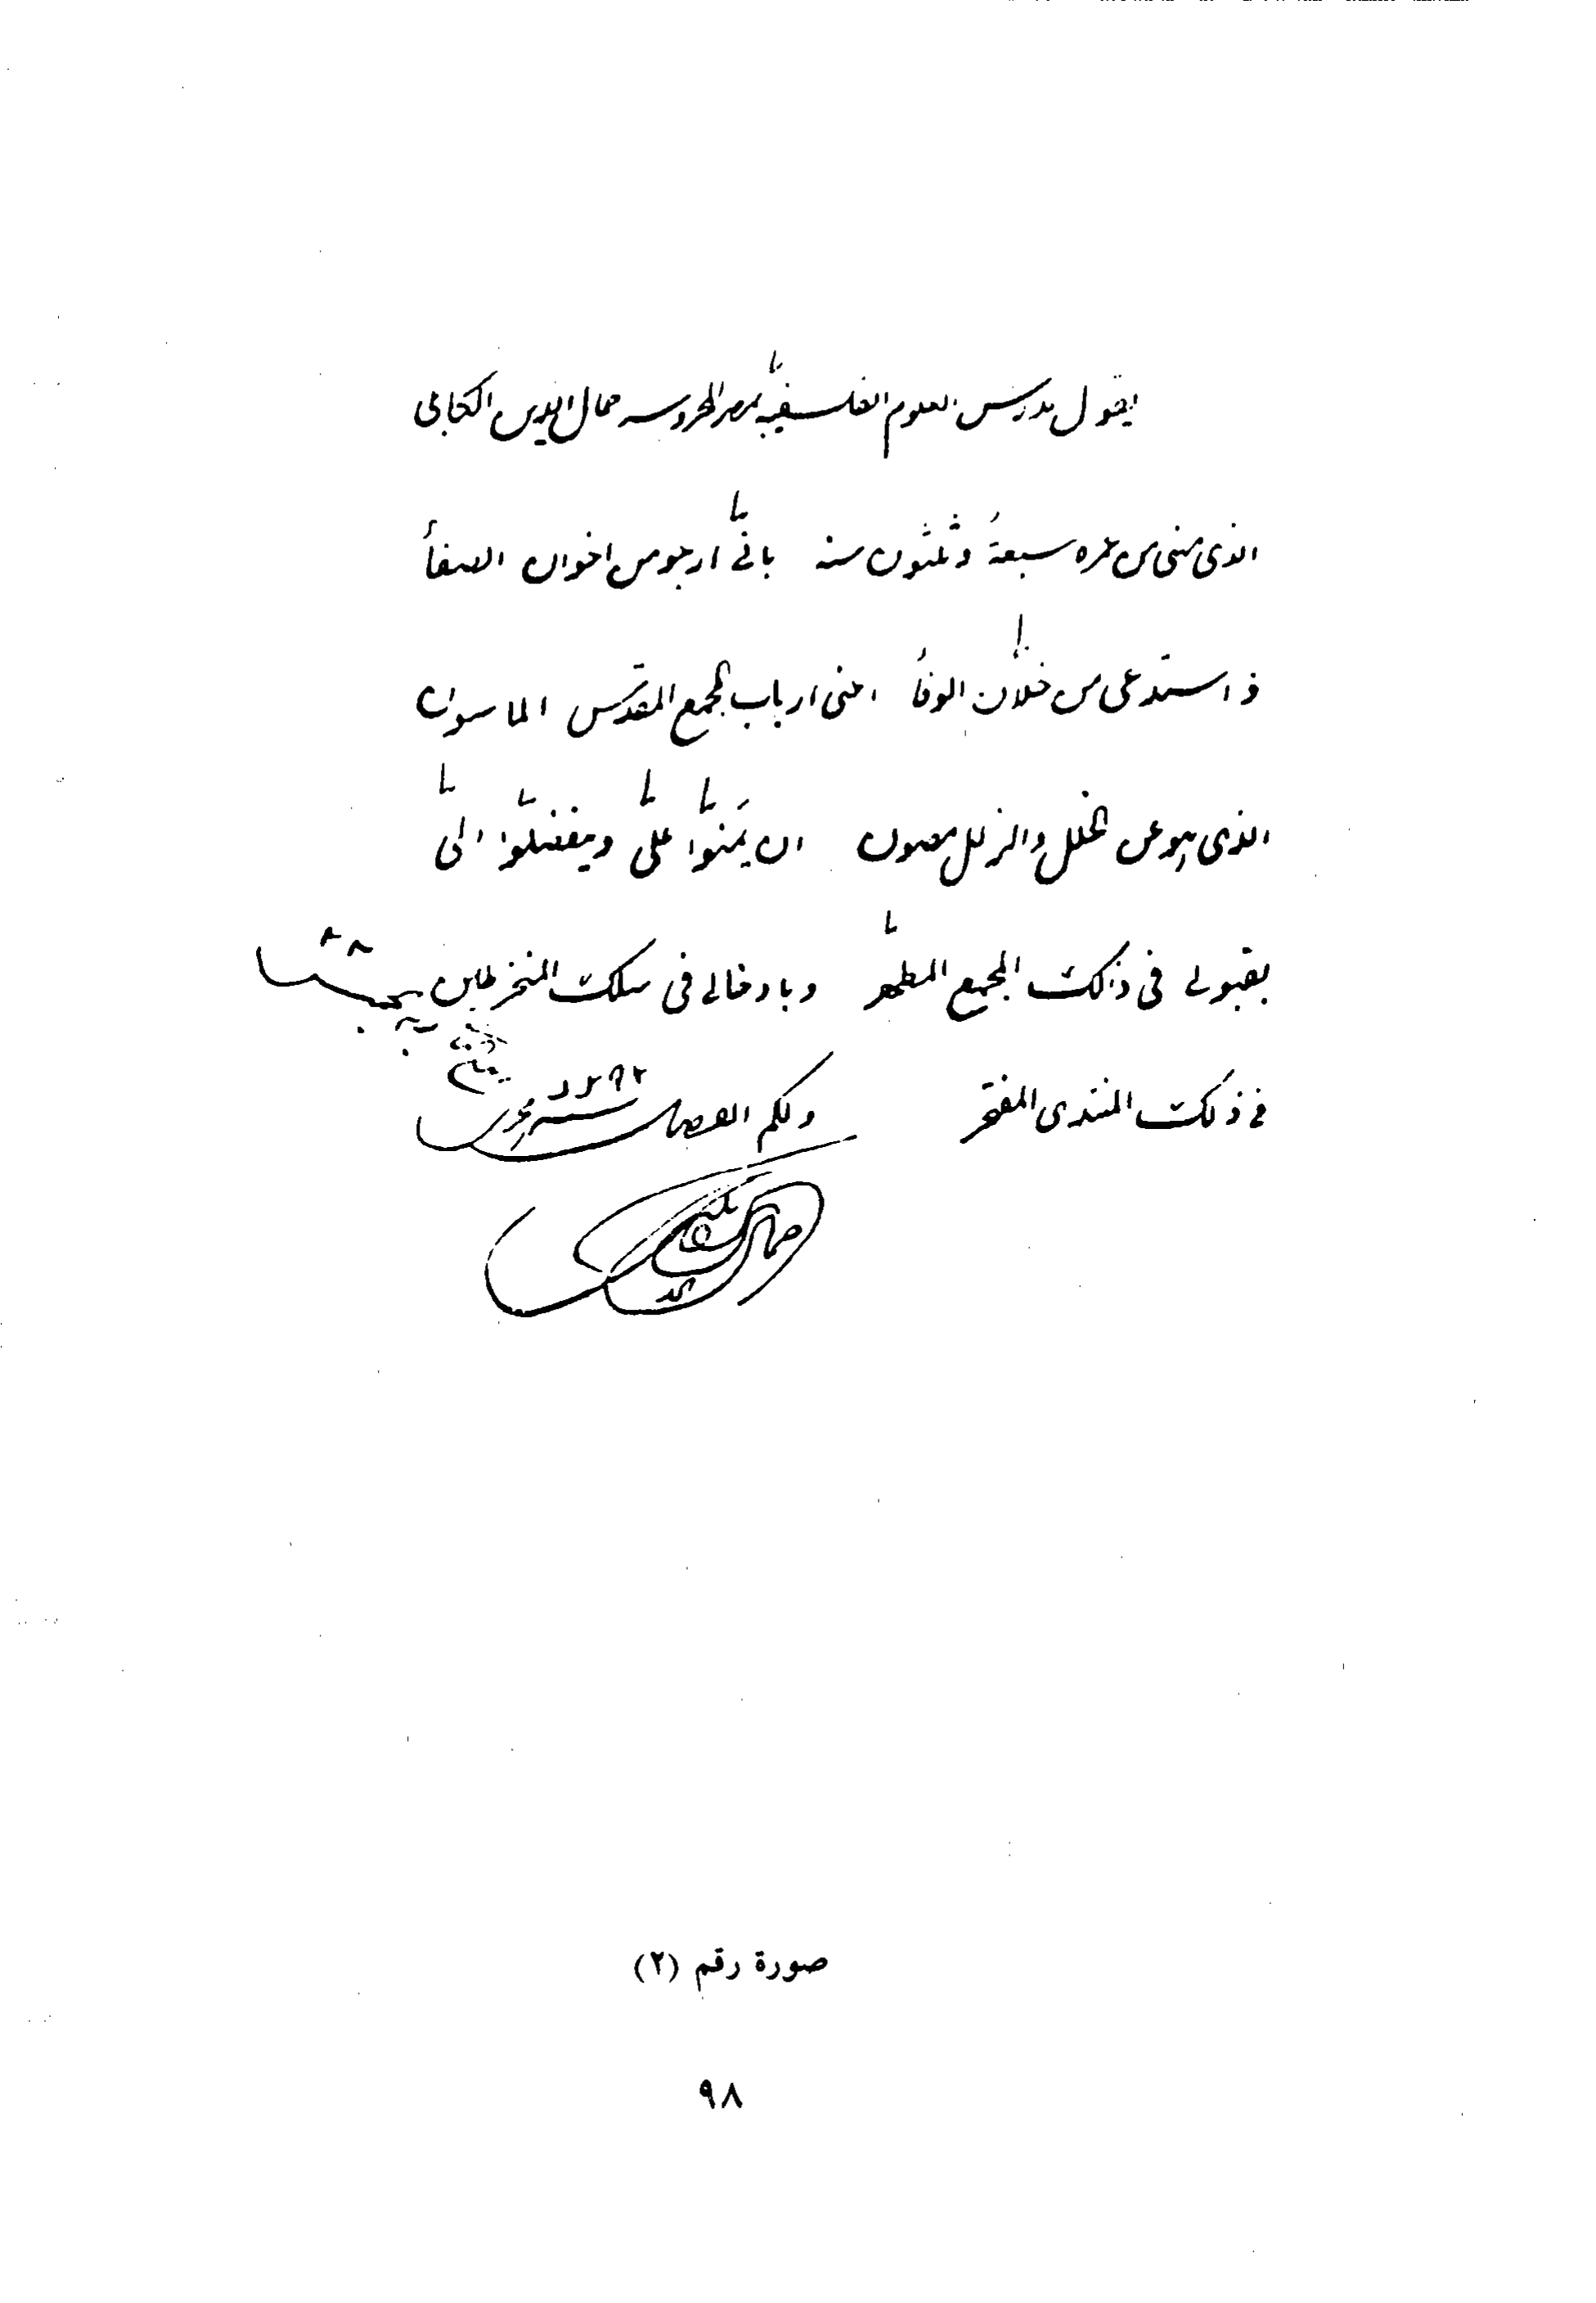 يقول مدرس العلوم الفلسفية بمصر المحروسة جمال الدين الكابلى
الذى مضى من عمره سبعة وثلثون سنة بانى ارجو من اخوان الصفأ
و استدعى من خلان الوفأ اعنى ارباب المجمع المقدس الماسون
الذى هو عن الخلل والزلل مصون ان يمنوا على ويتفضلوا الى
بقبولى فى ذلك المجمع المطهر وبادخالى فى سلك المنخرطين
فى ذلك المنتدى المفتخر ولكم الفضل
١٢٩٢
جمال الدين
صورة رقم (٢)
٩٨